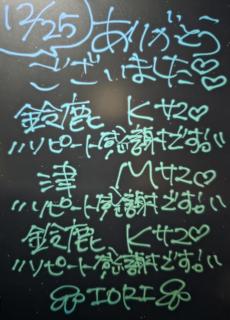 12/25 ありがとう
ございました♡
鈴鹿 Kサン♡
〃リピート感謝です!〃
津 Mサン♡
〃リピート感謝です!〃
鈴鹿 Kサン♡
〃リピート感謝です!〃
IORI